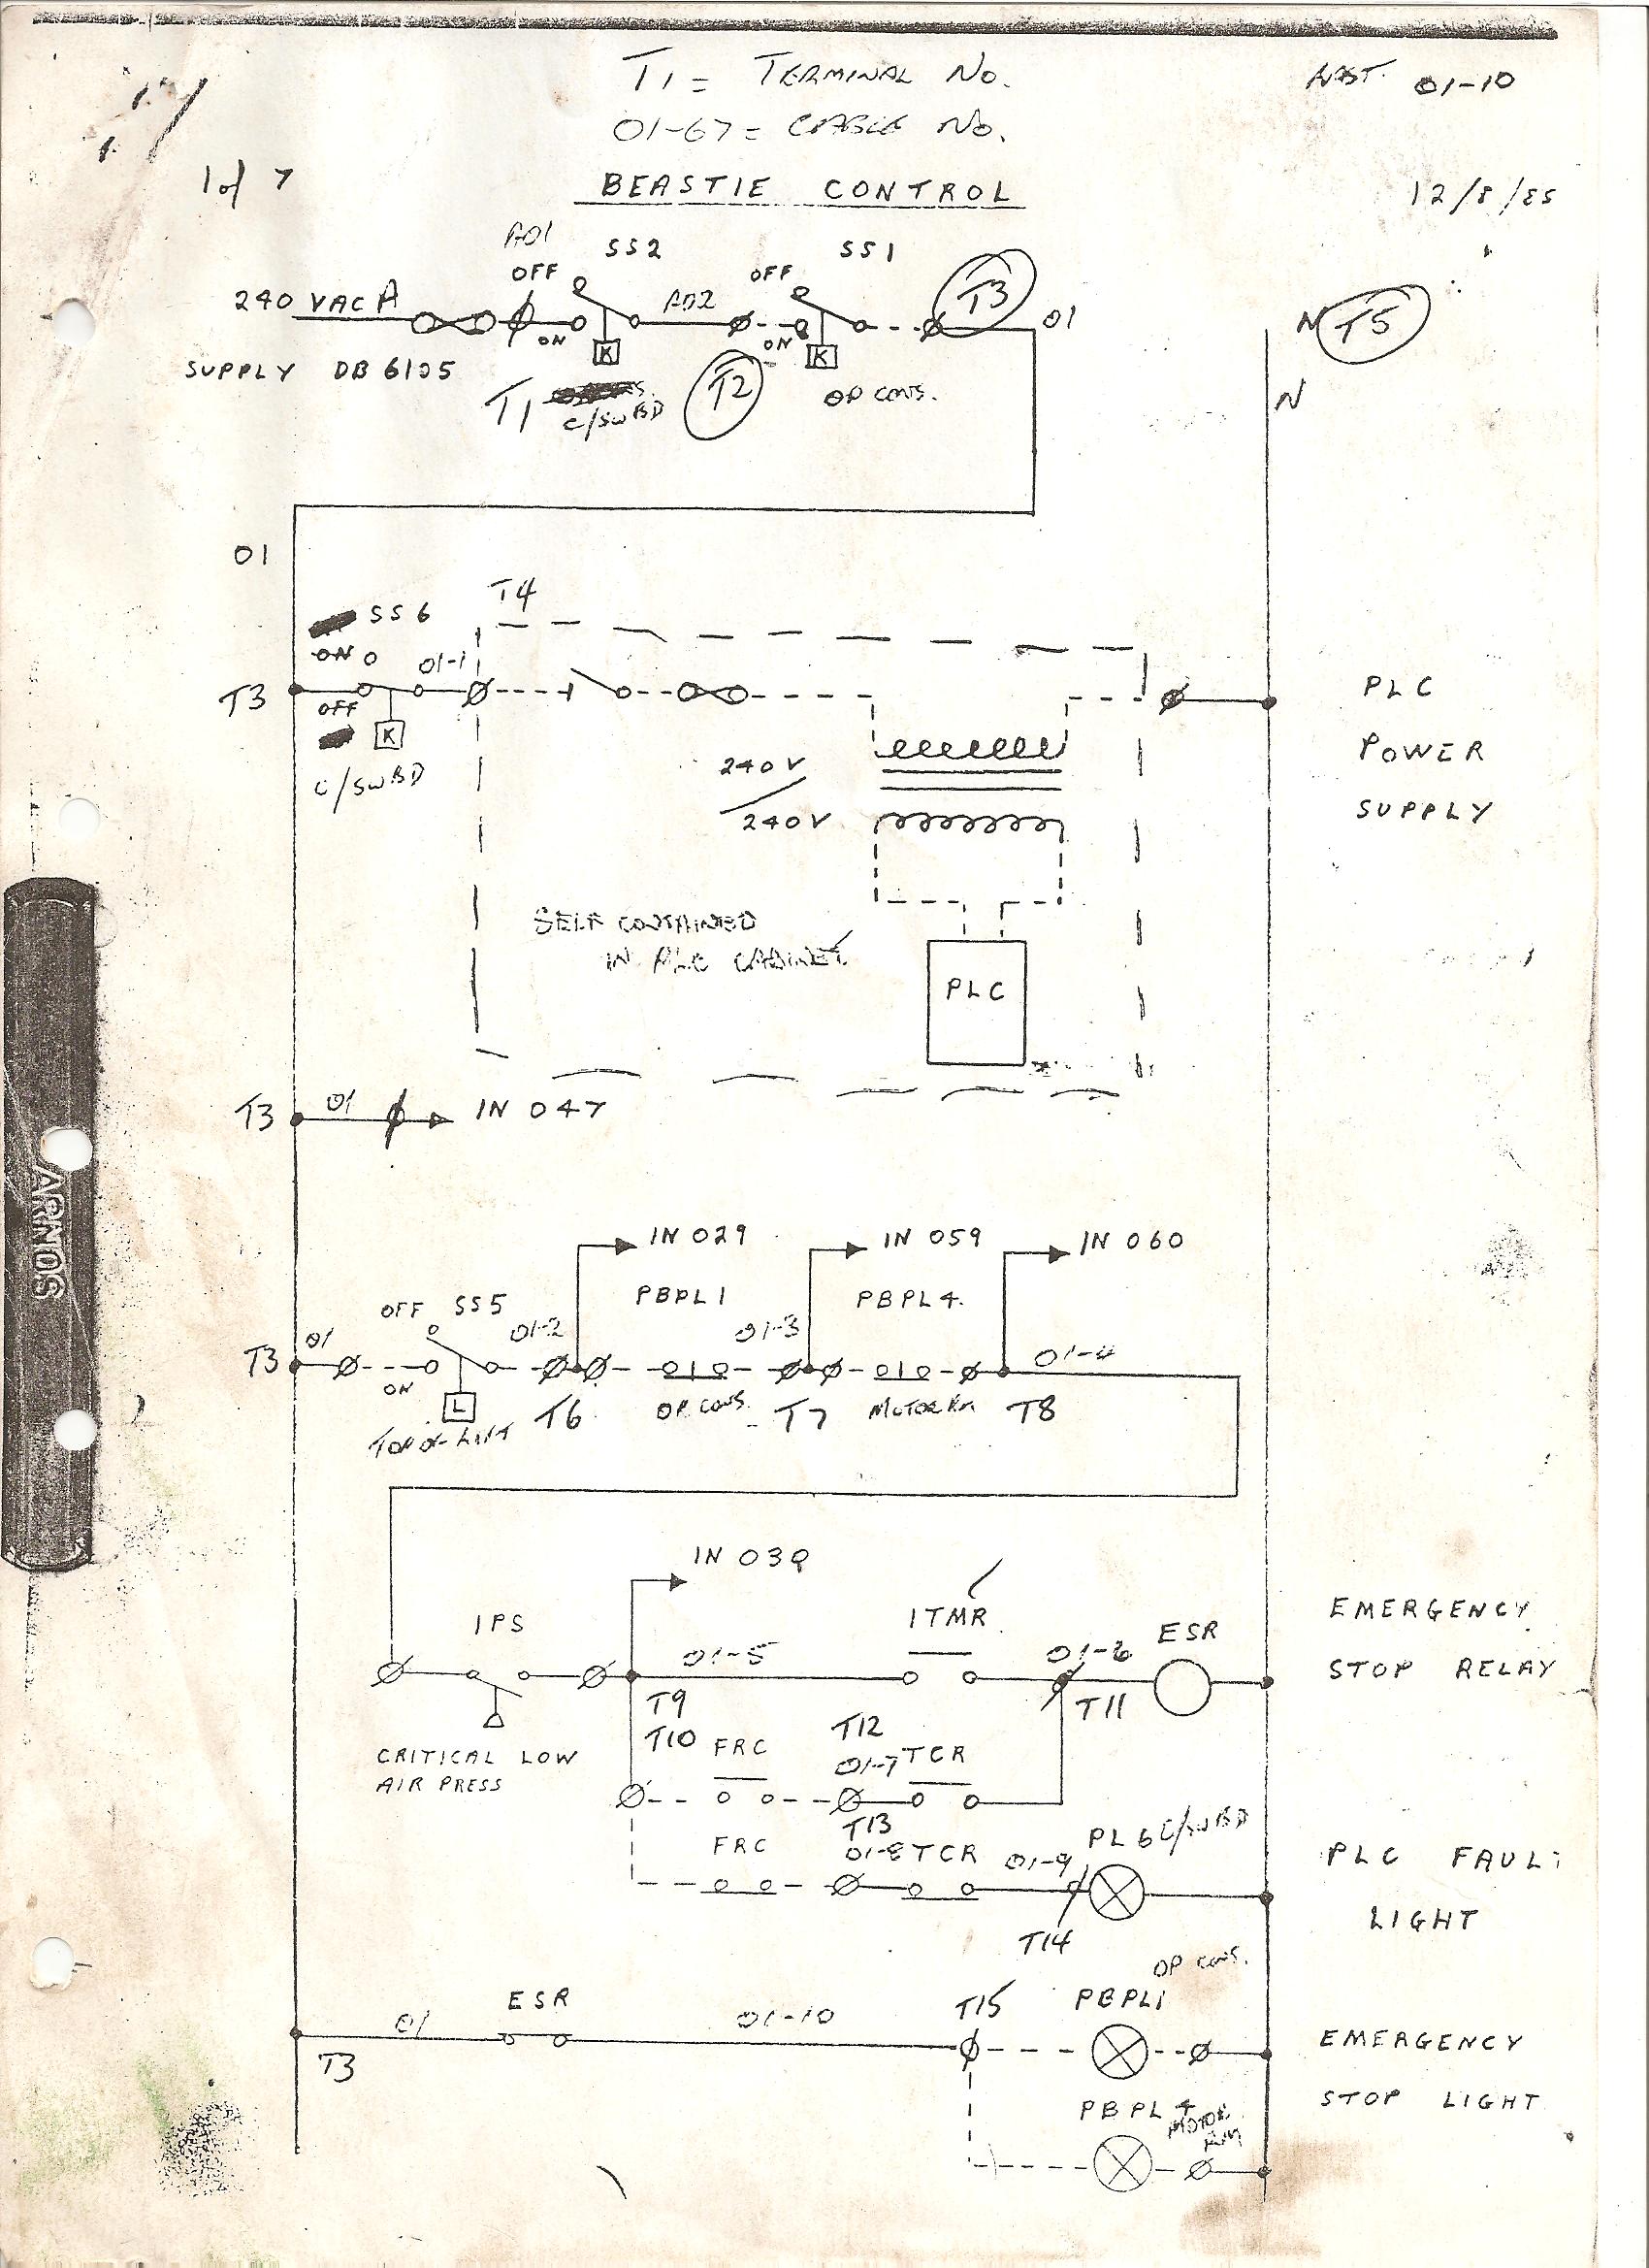 T1 = TERMINAL No.
01-10
01-67 = CABLE No.
1 of 7
BEASTIE CONTROL
12/8/85
A01
SS2
SS1
OFF
OFF
T3
240 VAC A
A02
01
N T5
ON
ON
K
K
SUPPLY DB 6105
T1
C/SWBD
T2
OP CONS.
N
01
T4
SS6
ON
01-1
T3
OFF
K
C/SWBD
PLC
POWER
SUPPLY
240V
240V
SELF CONTAINED
IN PLC CABINET
PLC
T3
01
IN 047
IN 029
IN 059
IN 060
PBPL1
PBPL4.
OFF
SS5
01-2
01-3
01-4
01
T3
ON
L
TOP OF LIFT
T6
OP CONS.
T7
MOTOR RM
T8
IN 030
1TMR
EMERGENCY
STOP RELAY
1PS
01-5
01-6
ESR
T9
T11
T10
FRC
T12
01-7
TCR
CRITICAL LOW
AIR PRESS
T13
FRC
01-8
TCR
01-9
PL6
C/SWBD
PLC FAULT
LIGHT
T14
OP CONS.
01
ESR
01-10
T15
PBPL1
T3
EMERGENCY
STOP LIGHT
PBPL4
MOTOR
RM
ARNOS